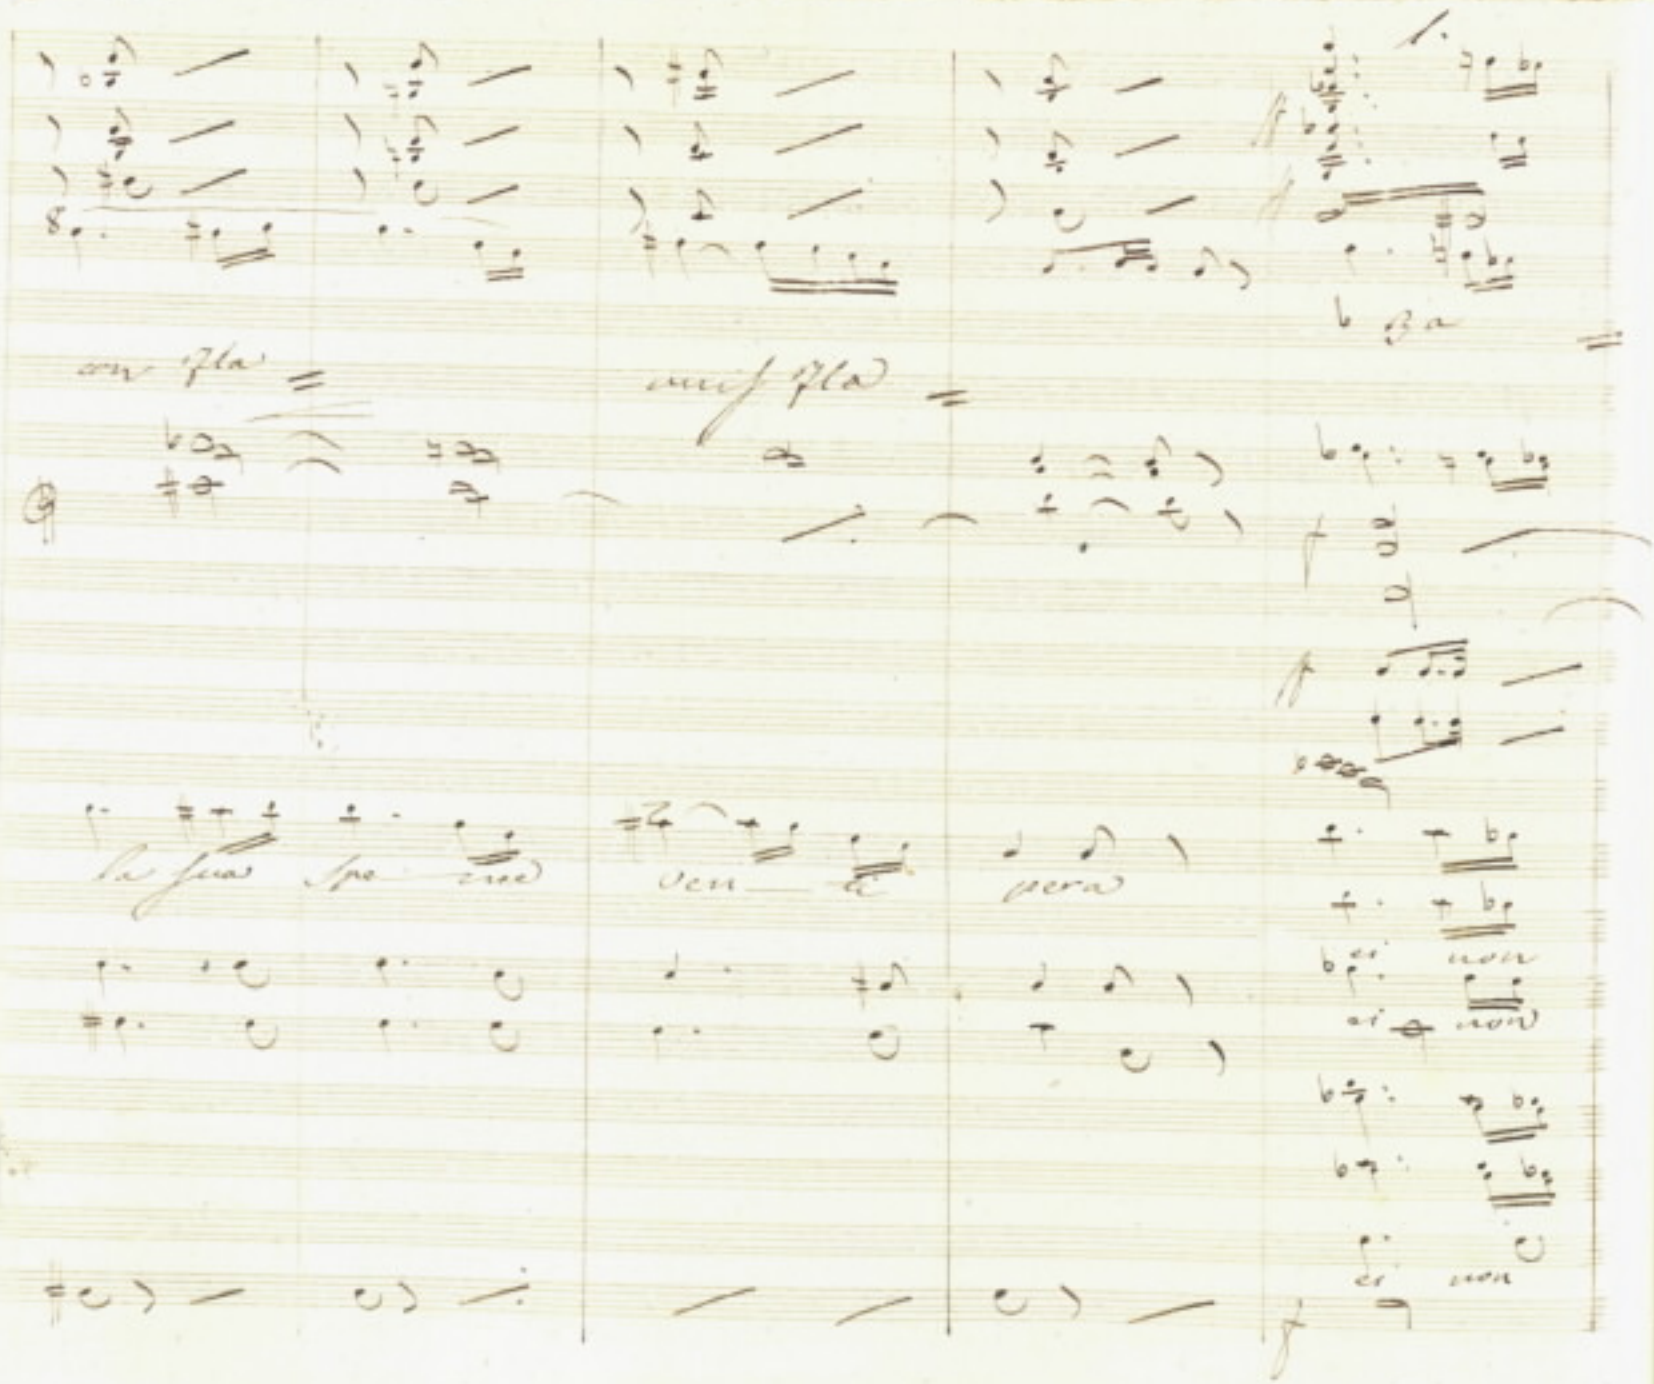 8
Ba
con fla
unis fla
f
la sua spe me ven ti pera
ei non
ei non
ei non
f